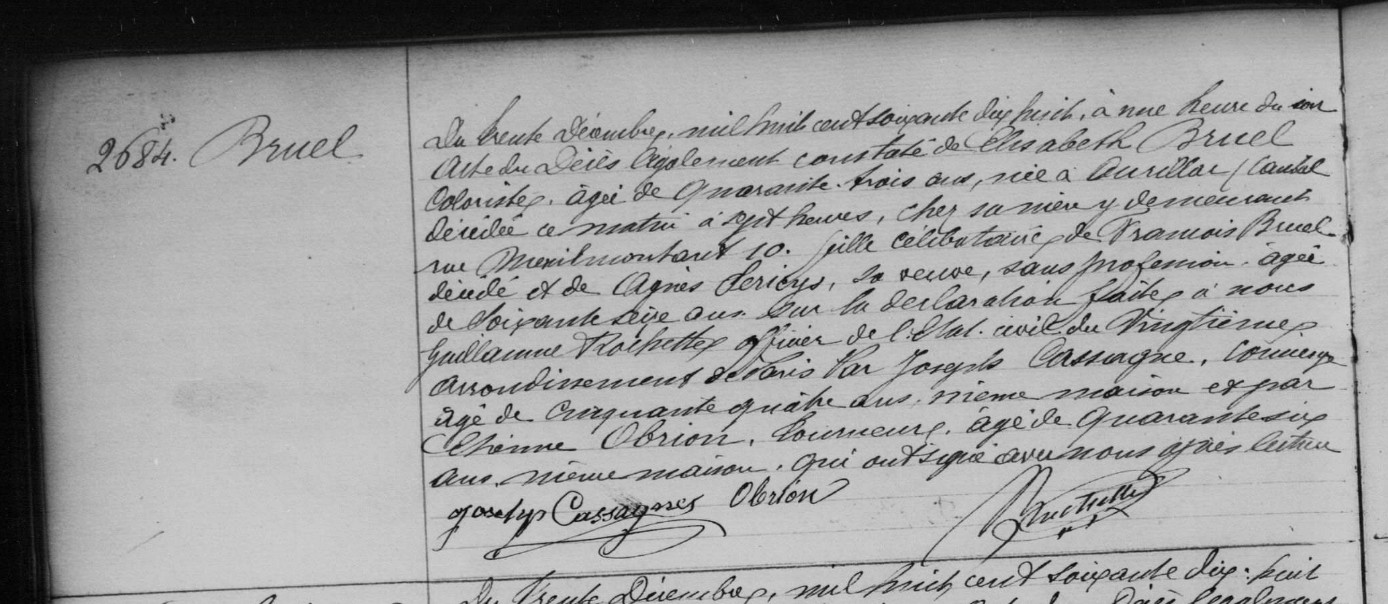 2684. Bruel
Du trente Décembre, mil huit cent soixante dix huit, à une heure du soir
Acte du Décès légalement constaté de Elisabeth Bruel
Coloriste, âgée de quarante-trois ans, née à Aurillac (Cantal
décédée ce matin à sept heures, chez sa mère y demeurant
rue Menilmontant 10. fille célibataire de Francois Bruel
décédé et de Agnès sa veuve, sans profession. âgée
de soixante seize ans. Sur la déclaration faite à nous
Guillaume Rochette officier de l'Etat. civil du Vingtième
arrondissement de Paris Par Joseph Cassagne, concierge
âgé de cinquante quatre ans. même maison et par
Etienne Obrion, tourneur, âgé de quarante six
ans. même maison. qui ont signé avec nous après lecture
joseph Cassagnes Obrion Rochette
Du Trente Décembre, mil huit cent soixante dix. huit